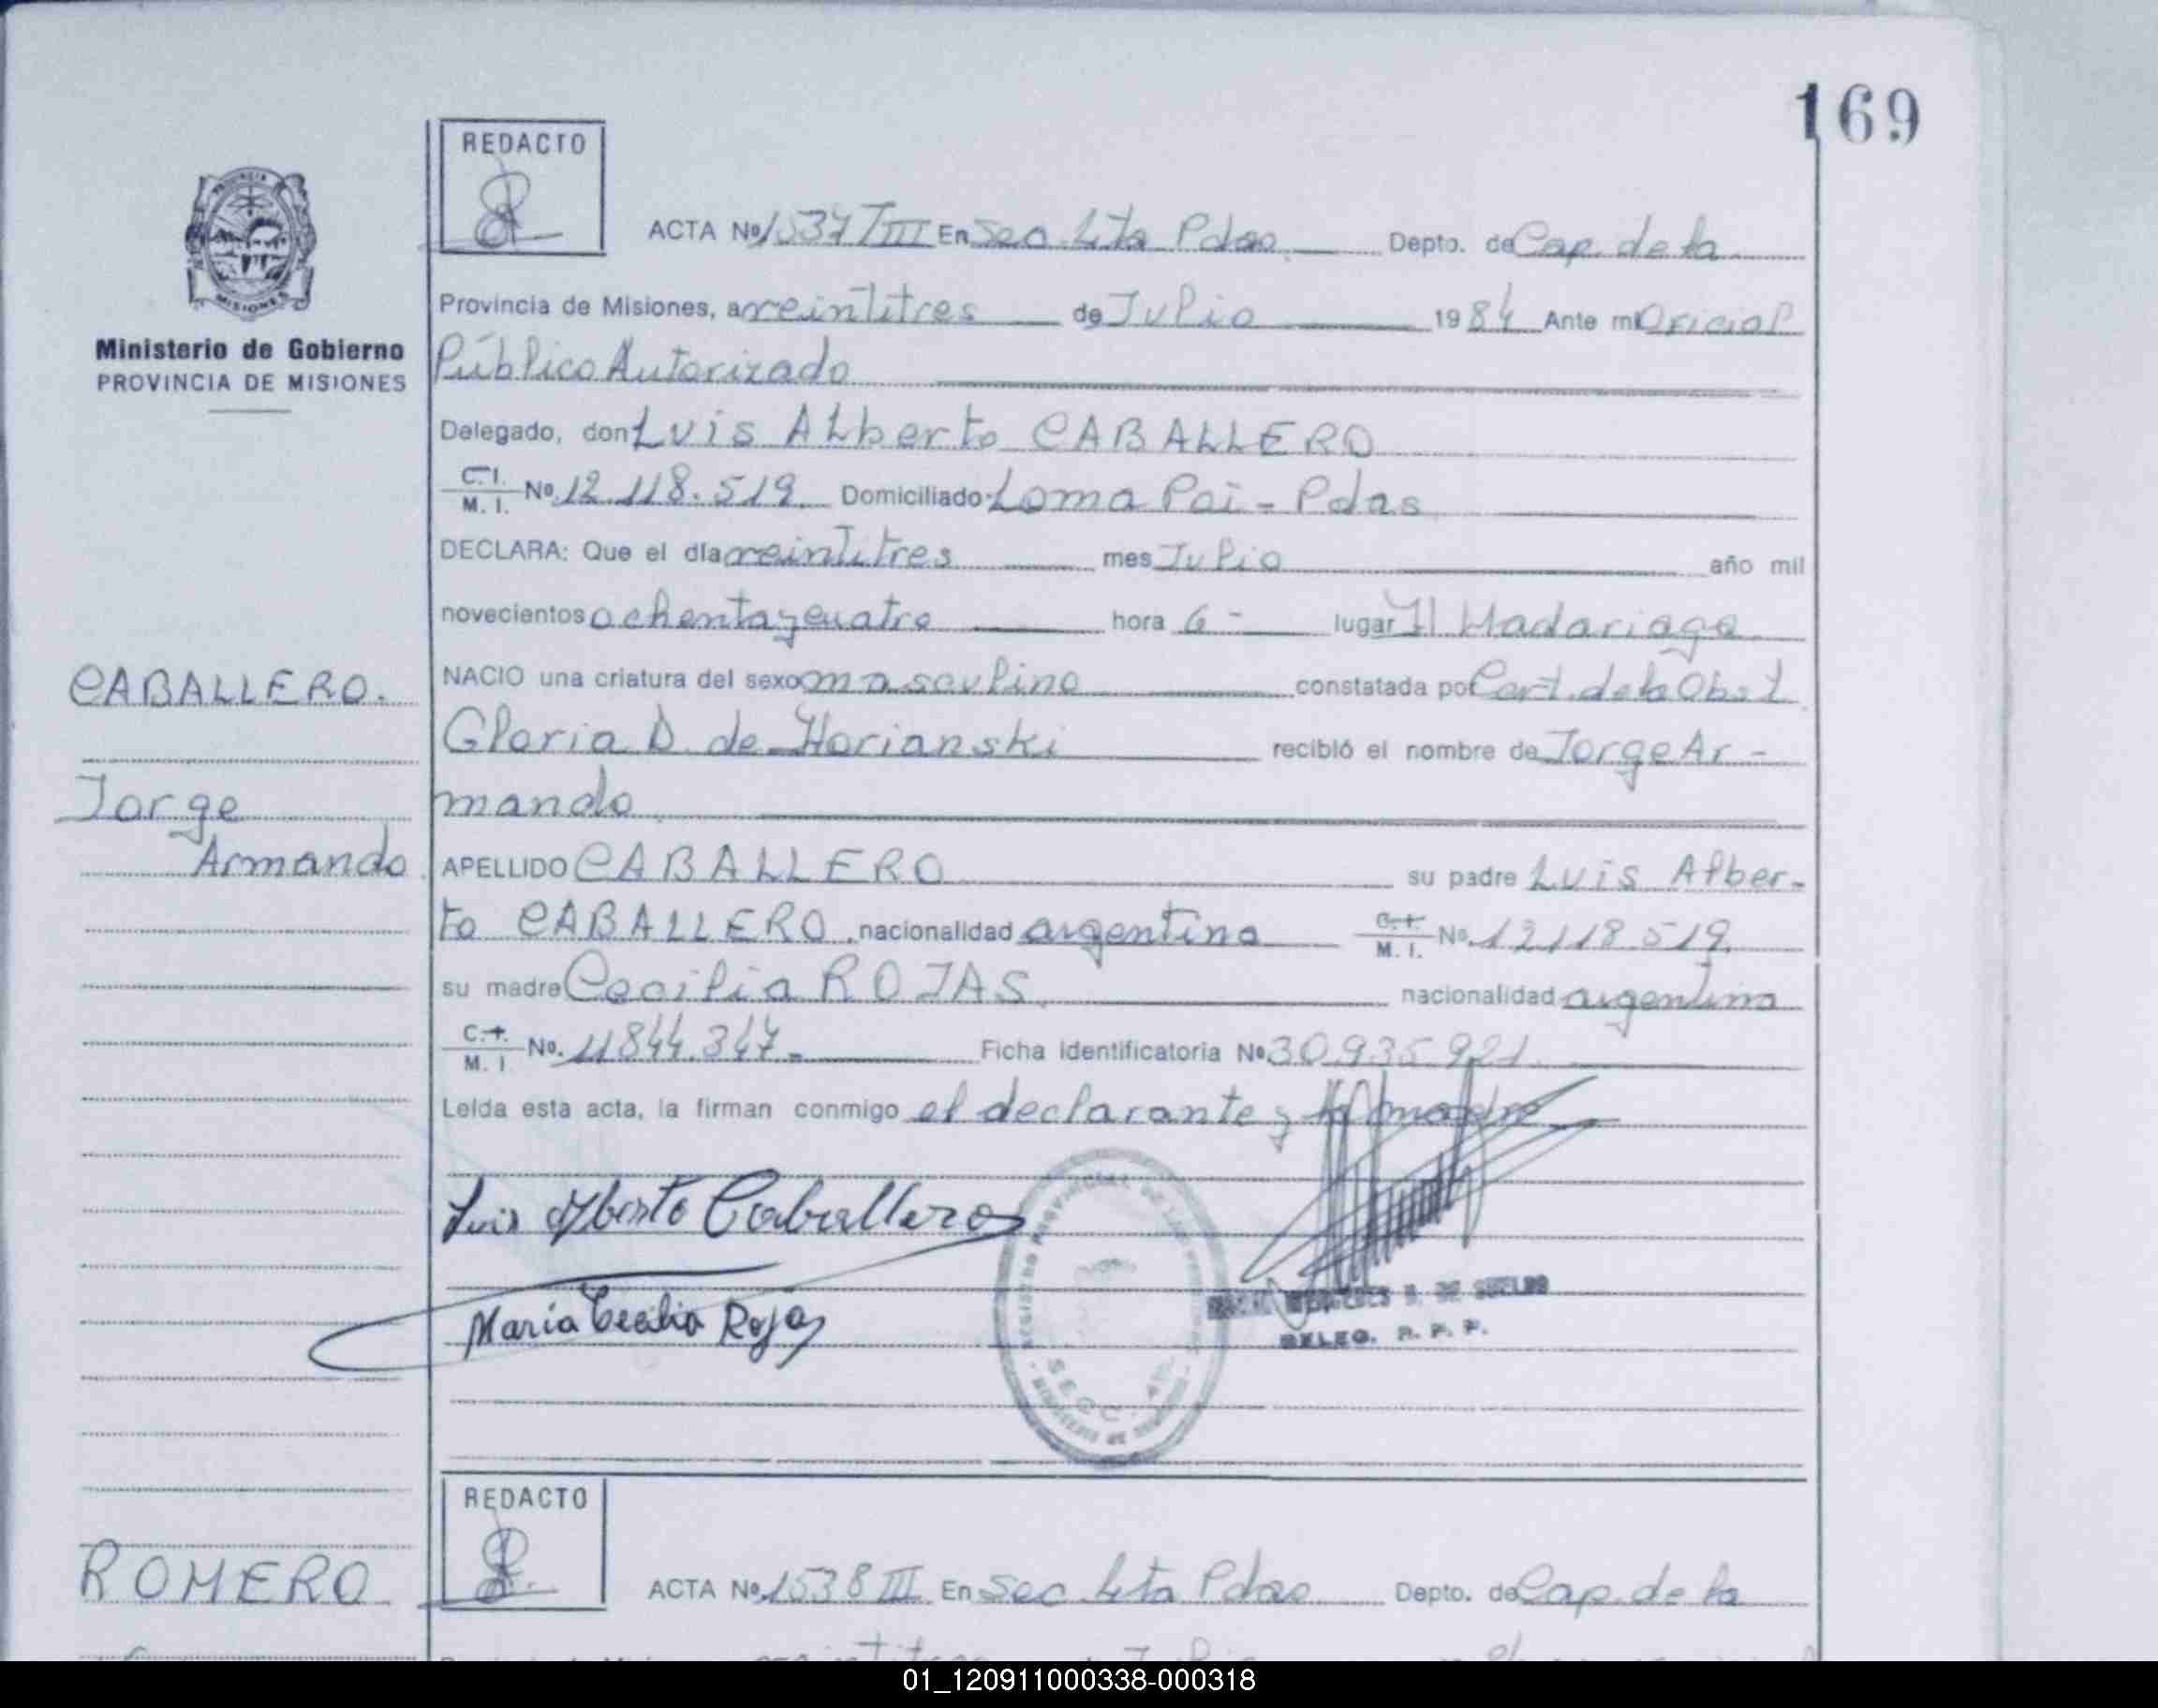 169
REDACTO
ACTA Nº 1537 III En Sec. 4ta Pdas. Depto. de Cap. de la
Provincia de Misiones, a veintitres de Julio 1984 Ante mi Oficial
Público Autorizado
Ministerio de Gobierno
PROVINCIA DE MISIONES
Delegado, don Luis ALberto CABALLERO
C.I. M.I. Nº 12.118.519. Domiciliado: Loma Poi - Pdas
DECLARA: Que el día veintitres mes Julio año mil
novecientos ochenta y cuatro hora 6 - lugar H Madariaga
CABALLERO.
NACIO una criatura del sexo masculino constatada por Cert. de la Obst
Gloria D. de Horianski recibló el nombre de Jorge Ar-
Jorge
mando
Armando
APELLIDO CABALLERO su padre Luis Alber-
to CABALLERO, nacionalidad argentina C.I. M.I. Nº 12118519
su madre Cecilia ROJAS. nacionalidad argentina
C.I. M.I. No. 11844.347.- Ficha Identificatoria Nº 30.935.921.
Leída esta acta, la firman conmigo el declarante y la madre
Luis Alberto Caballero
Maria Cecilia Rojas
DELEG. R. P. P.
SECC.
REDACTO
ROMERO
ACTA Nº 1538 III En Sec 4ta Pdas Depto. de Cap. de la
01_120911000338-000318